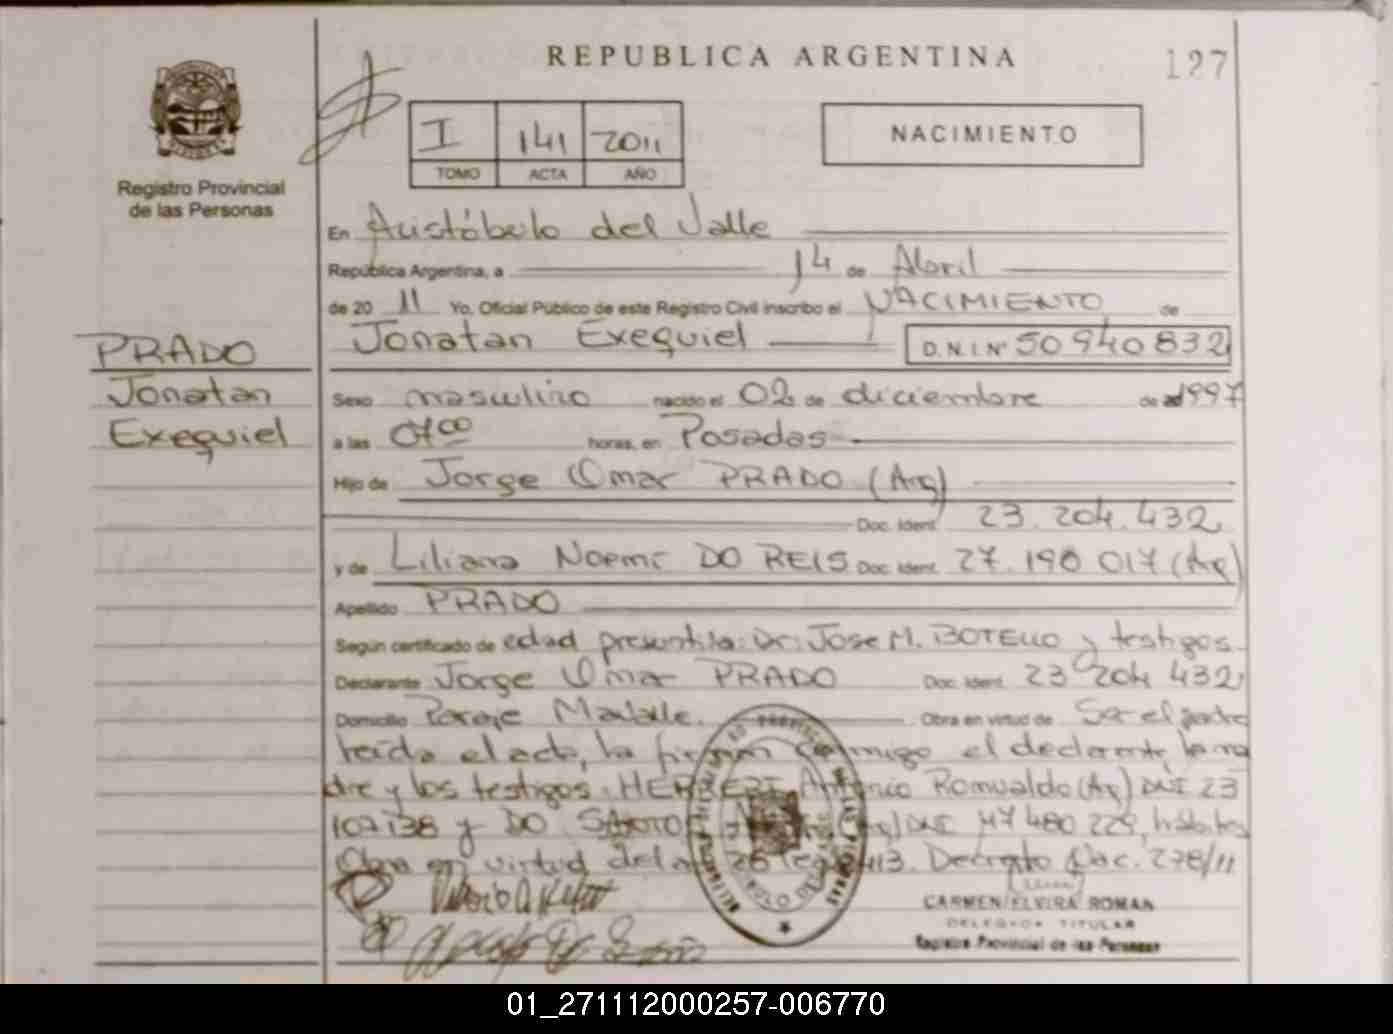 REPUBLICA ARGENTINA
127
I 141 2011
TOMO ACTA AÑO
NACIMIENTO
Registro Provincial
de las Personas
En Aristóbulo del Valle
República Argentina, a 14 de Abril
de 20 11 Yo, Oficial Público de este Registro Civil inscribo el NACIMIENTO de
PRADO
Jonatan
Exequiel
Jonatan Exequiel D.N.I Nº 50940832
Sexo masculino nacido el 02 de diciembre de 1997
a las 0700 horas, en Posadas
Hijo de Jorge Omar PRADO (Arg)
Doc. Ident. 23.204.432
y de Liliana Noemi DO REIS Doc. Ident. 27.190 017 (Arg)
Apellido PRADO
Según certificado de edad presuntiva: Dr: Jose M. BOTELLO y testigos
Declarante Jorge Omar PRADO Doc. Ident. 23 204 432
Domicilio Paraje Obra en virtud de Ser el padre
leída el acta, la firman conmigo el declarante, la ma
dre y los testigos: Antonio Romualdo (Arg) DNI 23
107138 y DO DNI 480 229,
Obra en virtud del Decreto Nac. 278/11
CARMEN ELVIRA ROMAN
DELEGADA TITULAR
Registro Provincial de las Personas
01_271112000257-006770